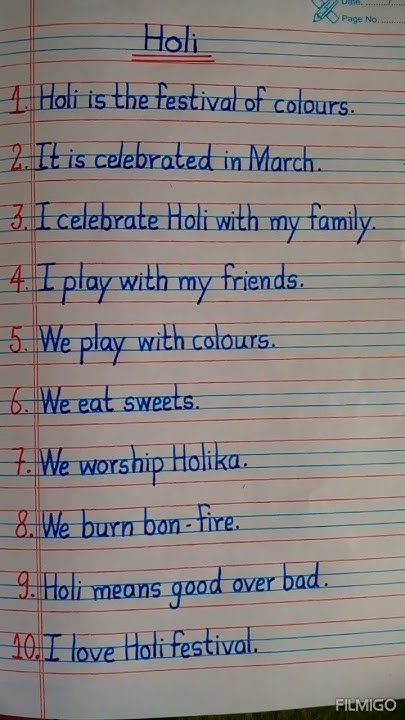 Date.
Page No.
Holi
1. Holi is the festival of colours.
2. It is celebrated in March.
3. I celebrate Holi with my family.
4. I play with my friends.
5. We play with colours.
6. We eat sweets.
7. We worship Holika.
8. We burn bon-fire.
9. Holi means good over bad.
10. I love Holi festival.
FILMIGO